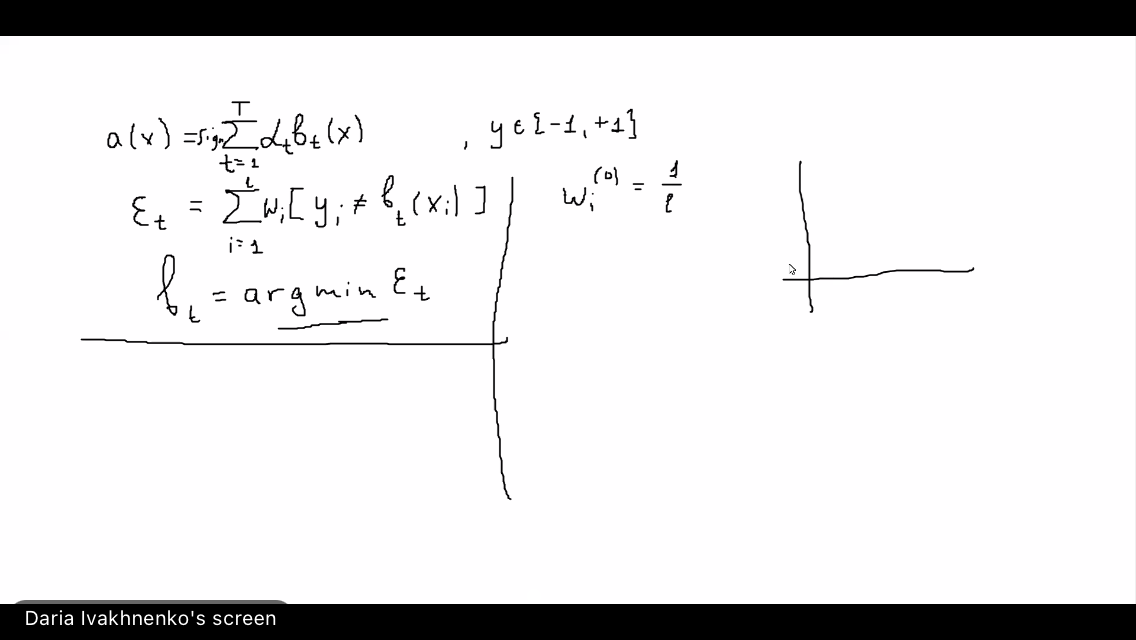 a(x) = sign Σ_{t=1}^{T} α_t b_t(x) , y ∈ {-1, +1}
ε_t = Σ_{i=1}^{l} w_i [ y_i ≠ b_t(x_i) ]
w_i^{(0)} = 1/l
b_t = argmin ε_t
Daria Ivakhnenko's screen